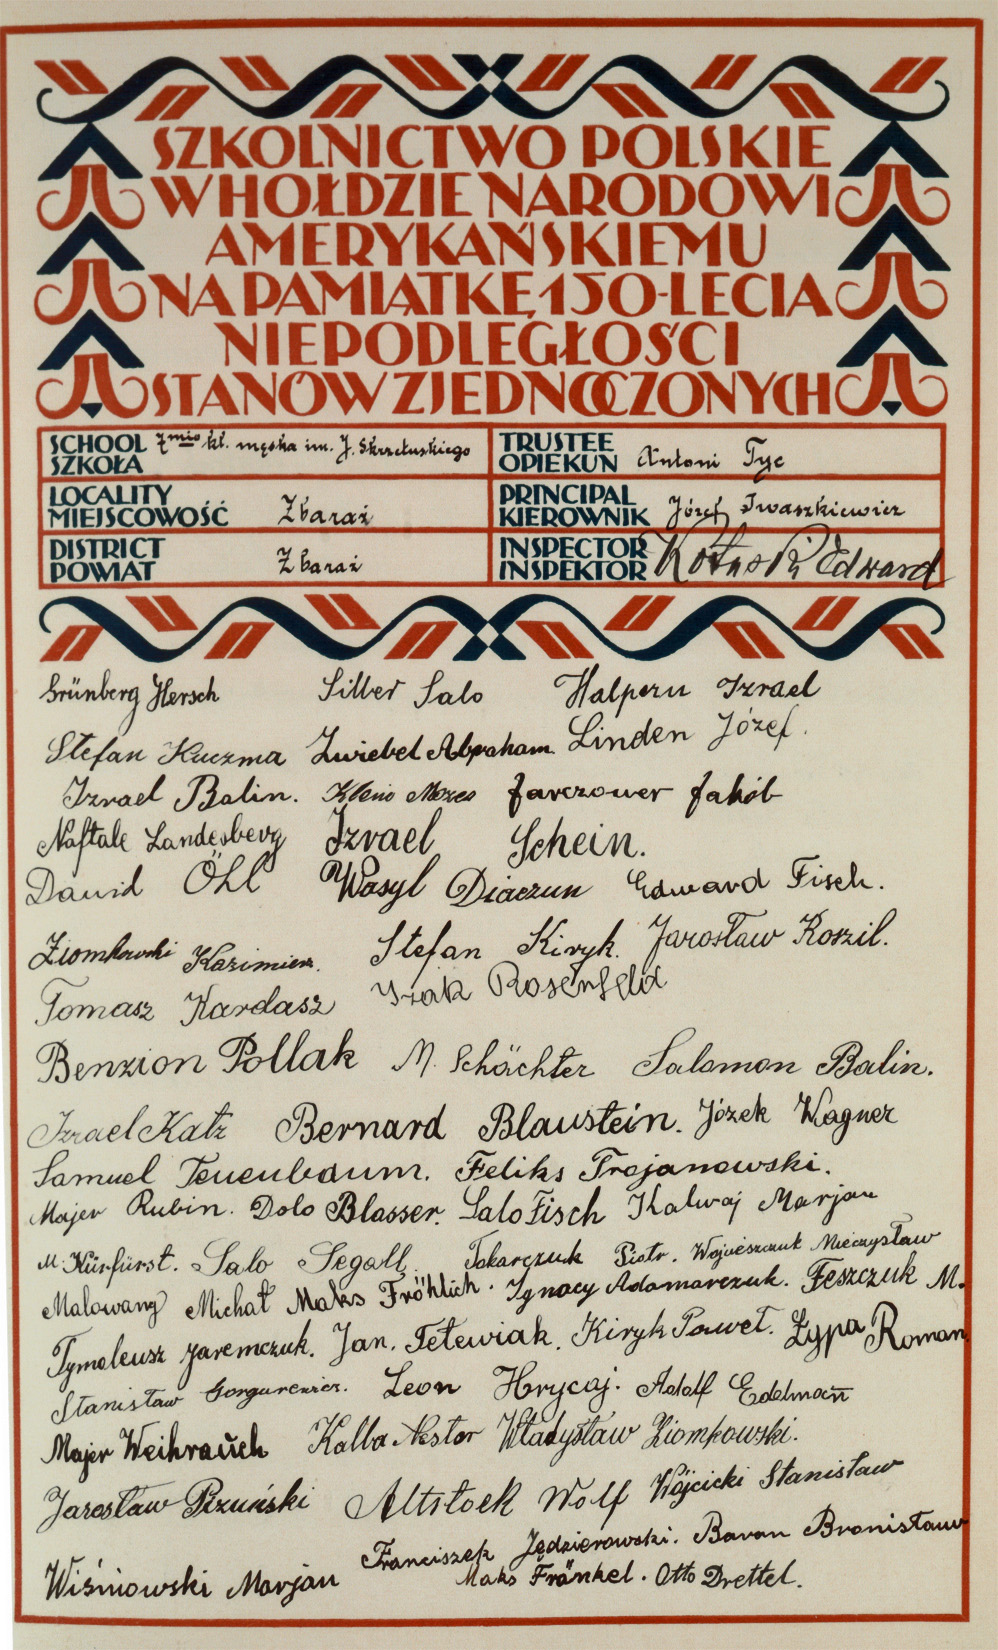 SZKOLNICTWO POLSKIE
W HOŁDZIE NARODOWI
AMERYKAŃSKIEMU
NA PAMIĄTKĘ 150-LECIA
NIEPODLEGŁOŚCI
STANÓW ZJEDNOCZONYCH
SCHOOL SZKOŁA 7mio kl. męska im. J. Skrzetuskiego
TRUSTEE OPIEKUN Antoni Tyc
LOCALITY MIEJSCOWOŚĆ Zbaraż
PRINCIPAL KIEROWNIK Józef Iwaszkiewicz
DISTRICT POWIAT Zbaraż
INSPECTOR INSPEKTOR Edward
Grünberg Hersch Silber Salo Halpern Izrael
Stefan Kuczma Zwiebel Abraham Linden Józef.
Izrael Balin. Klein Mozes Jarczower Jakób
Naftale Landesberg Izrael Schein.
Dawid Öhl Wasyl Diaczun Edward Fisch.
Ziomkowski Kazimierz. Stefan Kiryk. Jarosław Koszil.
Tomasz Kardasz Izak Rosenfeld
Benzion Pollak M. Schächter Salomon Balin.
Izrael Katz Bernard Blaustein. Józek Wagner
Samuel Tenenbaum. Feliks Trojanowski.
Majer Rubin. Dolo Blasser. Salo Fisch Kalwaj Marjan
M. Kürfürst. Salo Segall. Tokarczuk Piotr. Wojcieszczuk Mieczysław
Malowany Michał Maks Fröhlich. Ignacy Adamarczuk. Feszczuk M.
Tymoleusz Jaremczuk. Jan. Tetewiak. Kiryk Paweł. Zypa Roman.
Stanisław Gongurewicz. Leon Hrycaj. Adolf Edelmann
Majer Weihrauch Kalba Nestor Władysław Ziomkowski.
Jarosław Altstock Wolf Wójcicki Stanisław
Wiśniowski Marjan Franciszek Jędzierowski. Baran Bronisław
Maks Fränkel. Otto Drettel.